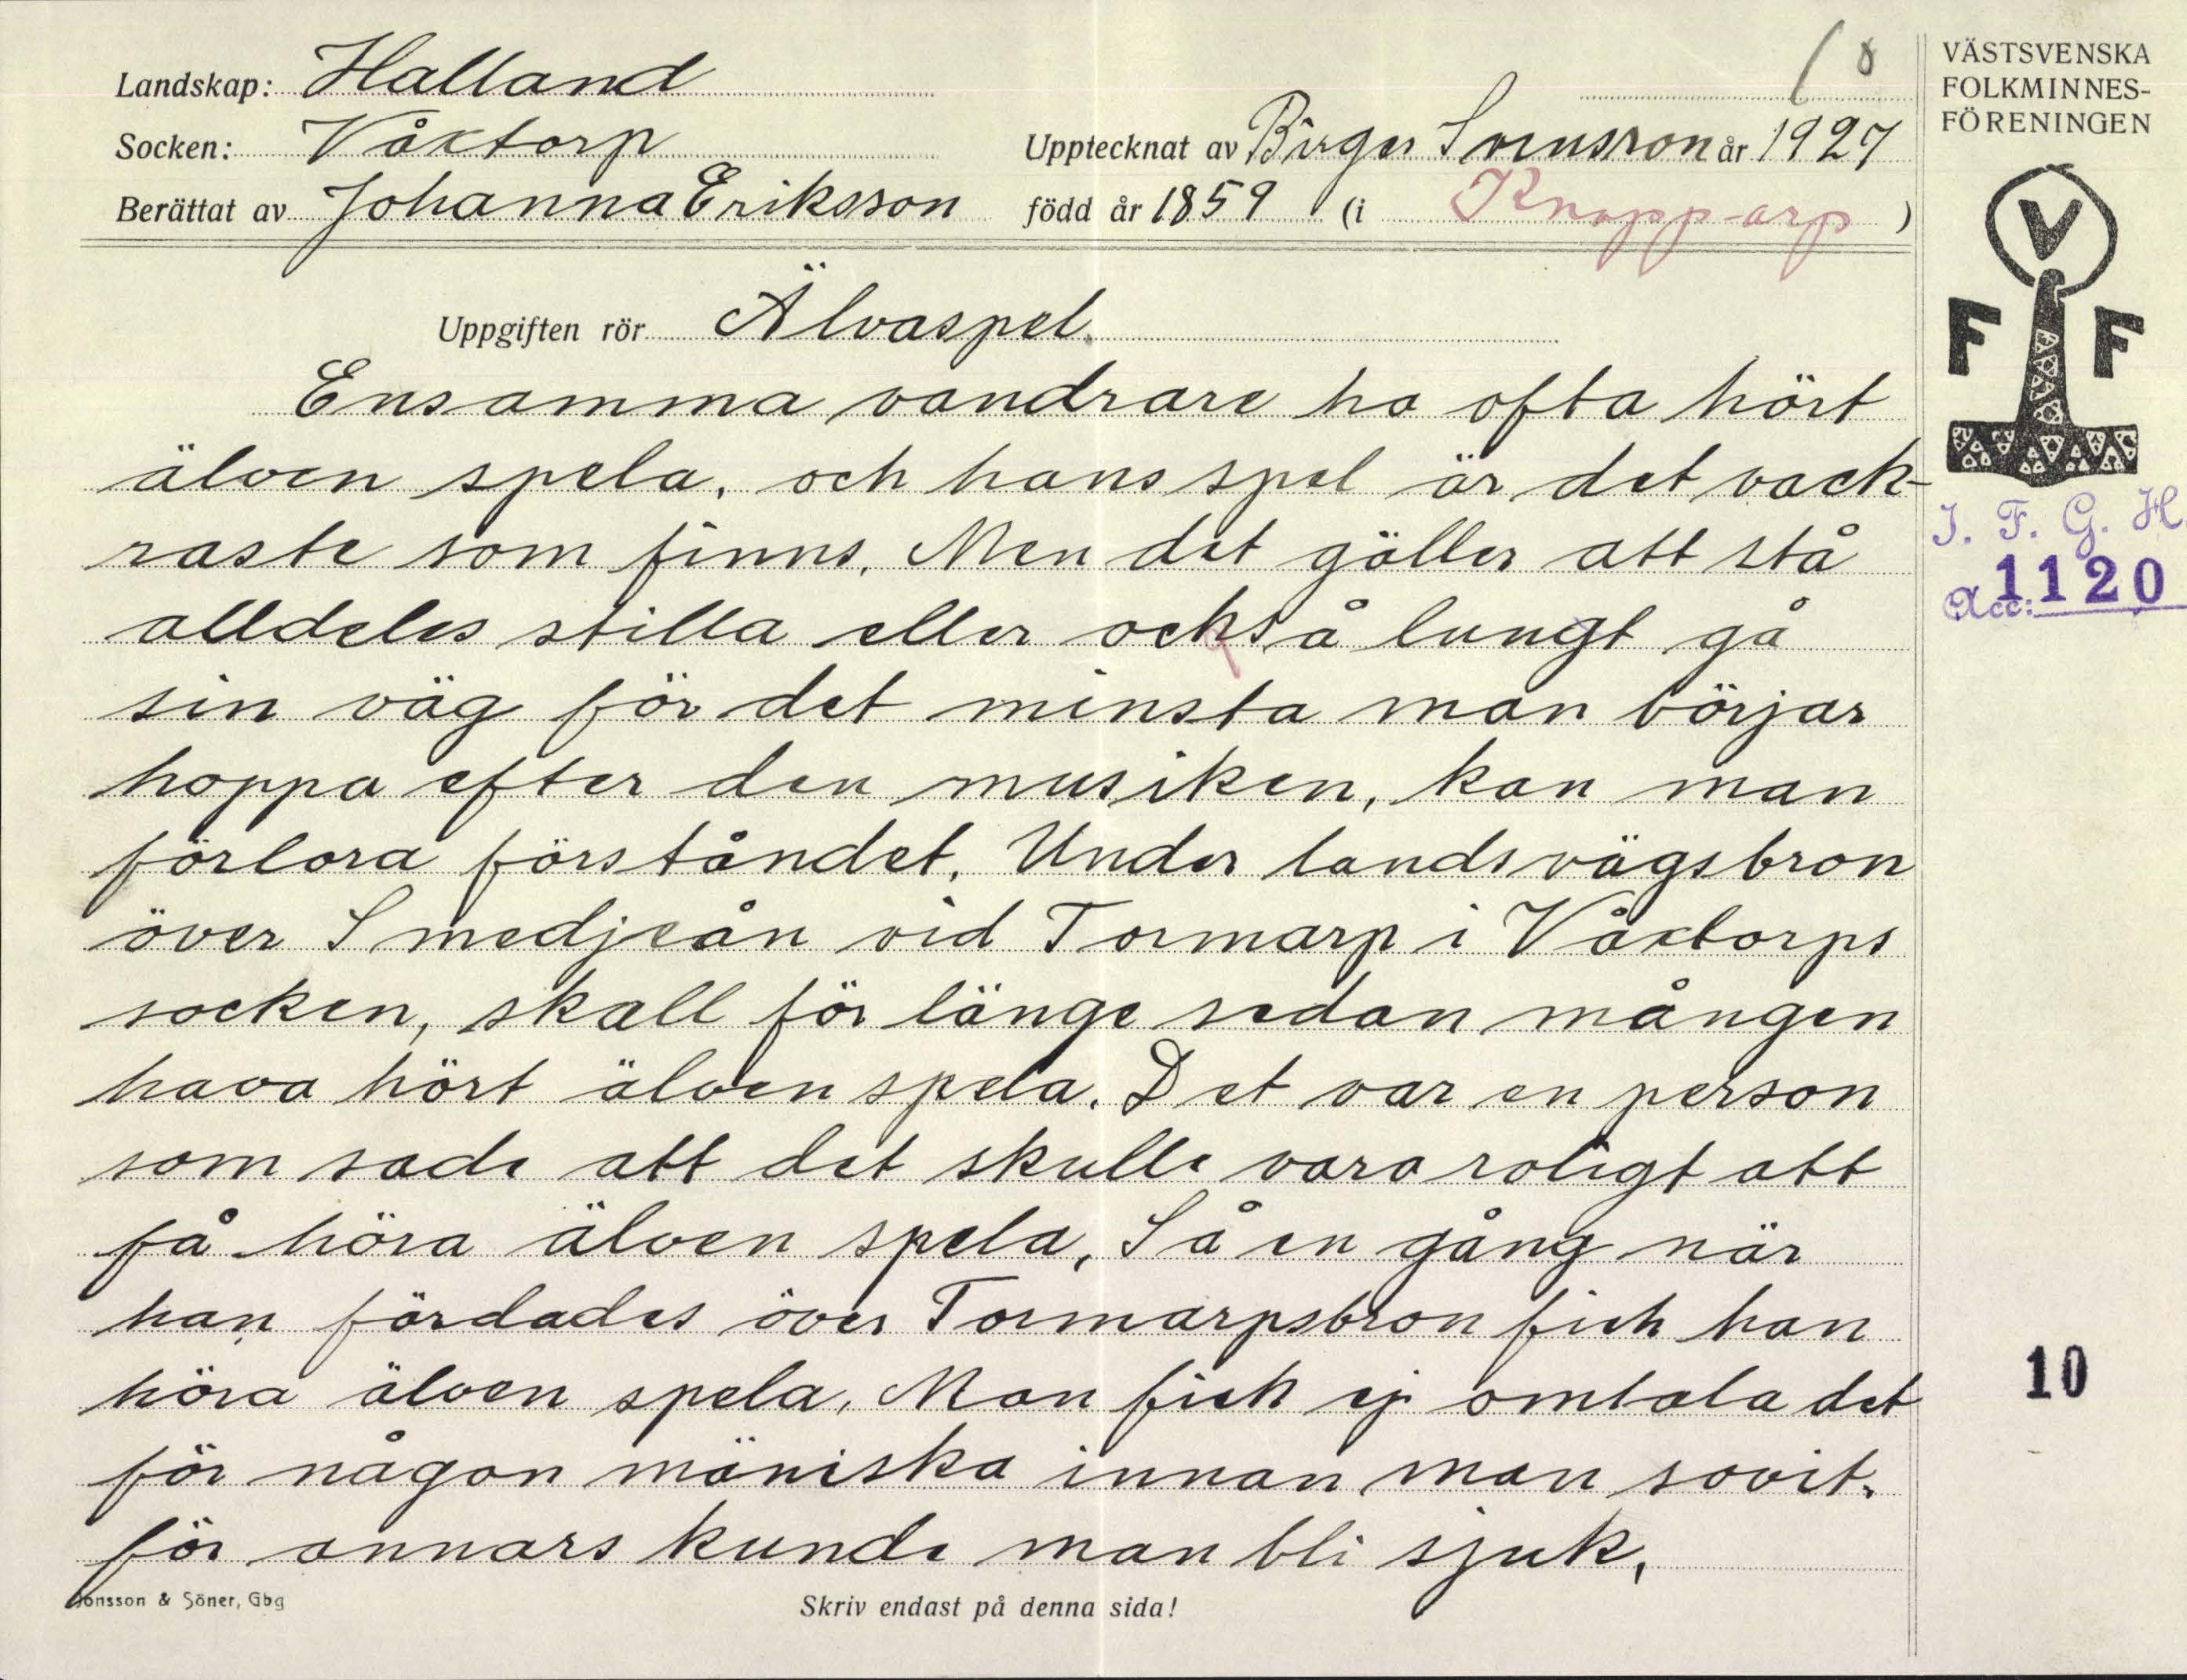 Landskap: Halland
Socken: Våxtorp
Upptecknat av Birger Svensson år 1927
Berättat av Johanna Eriksson född år 1859 (i Knapp-arp )
8
VÄSTSVENSKA
FOLKMINNES-
FÖRENINGEN
V
F F
I. F. G. H.
Acc: 1120
Uppgiften rör Älvaspel.
Ensamma vandrare ha ofta hört
älven spela, och hans spel är det vack-
raste som finns. Men det gäller att stå
alldeles stilla eller också lungt gå
sin väg för det minsta man börjar
hoppa efter den musiken, kan man
förlora förståndet. Under landsvägsbron
över Smedjeån vid Tormarp i Våxtorps
socken, skall för länge sedan mången
hava hört älven spela. Det var en person
som sade att det skulle vara roligt att
få höra älven spela, Så en gång när
han färdades över Tormarpsbron fick han
höra älven spela, Man fick ej omtala det
för någon mäniska innan man sovit.
för annars kunde man bli sjuk,
10
Jonsson & Söner, Gbg
Skriv endast på denna sida!